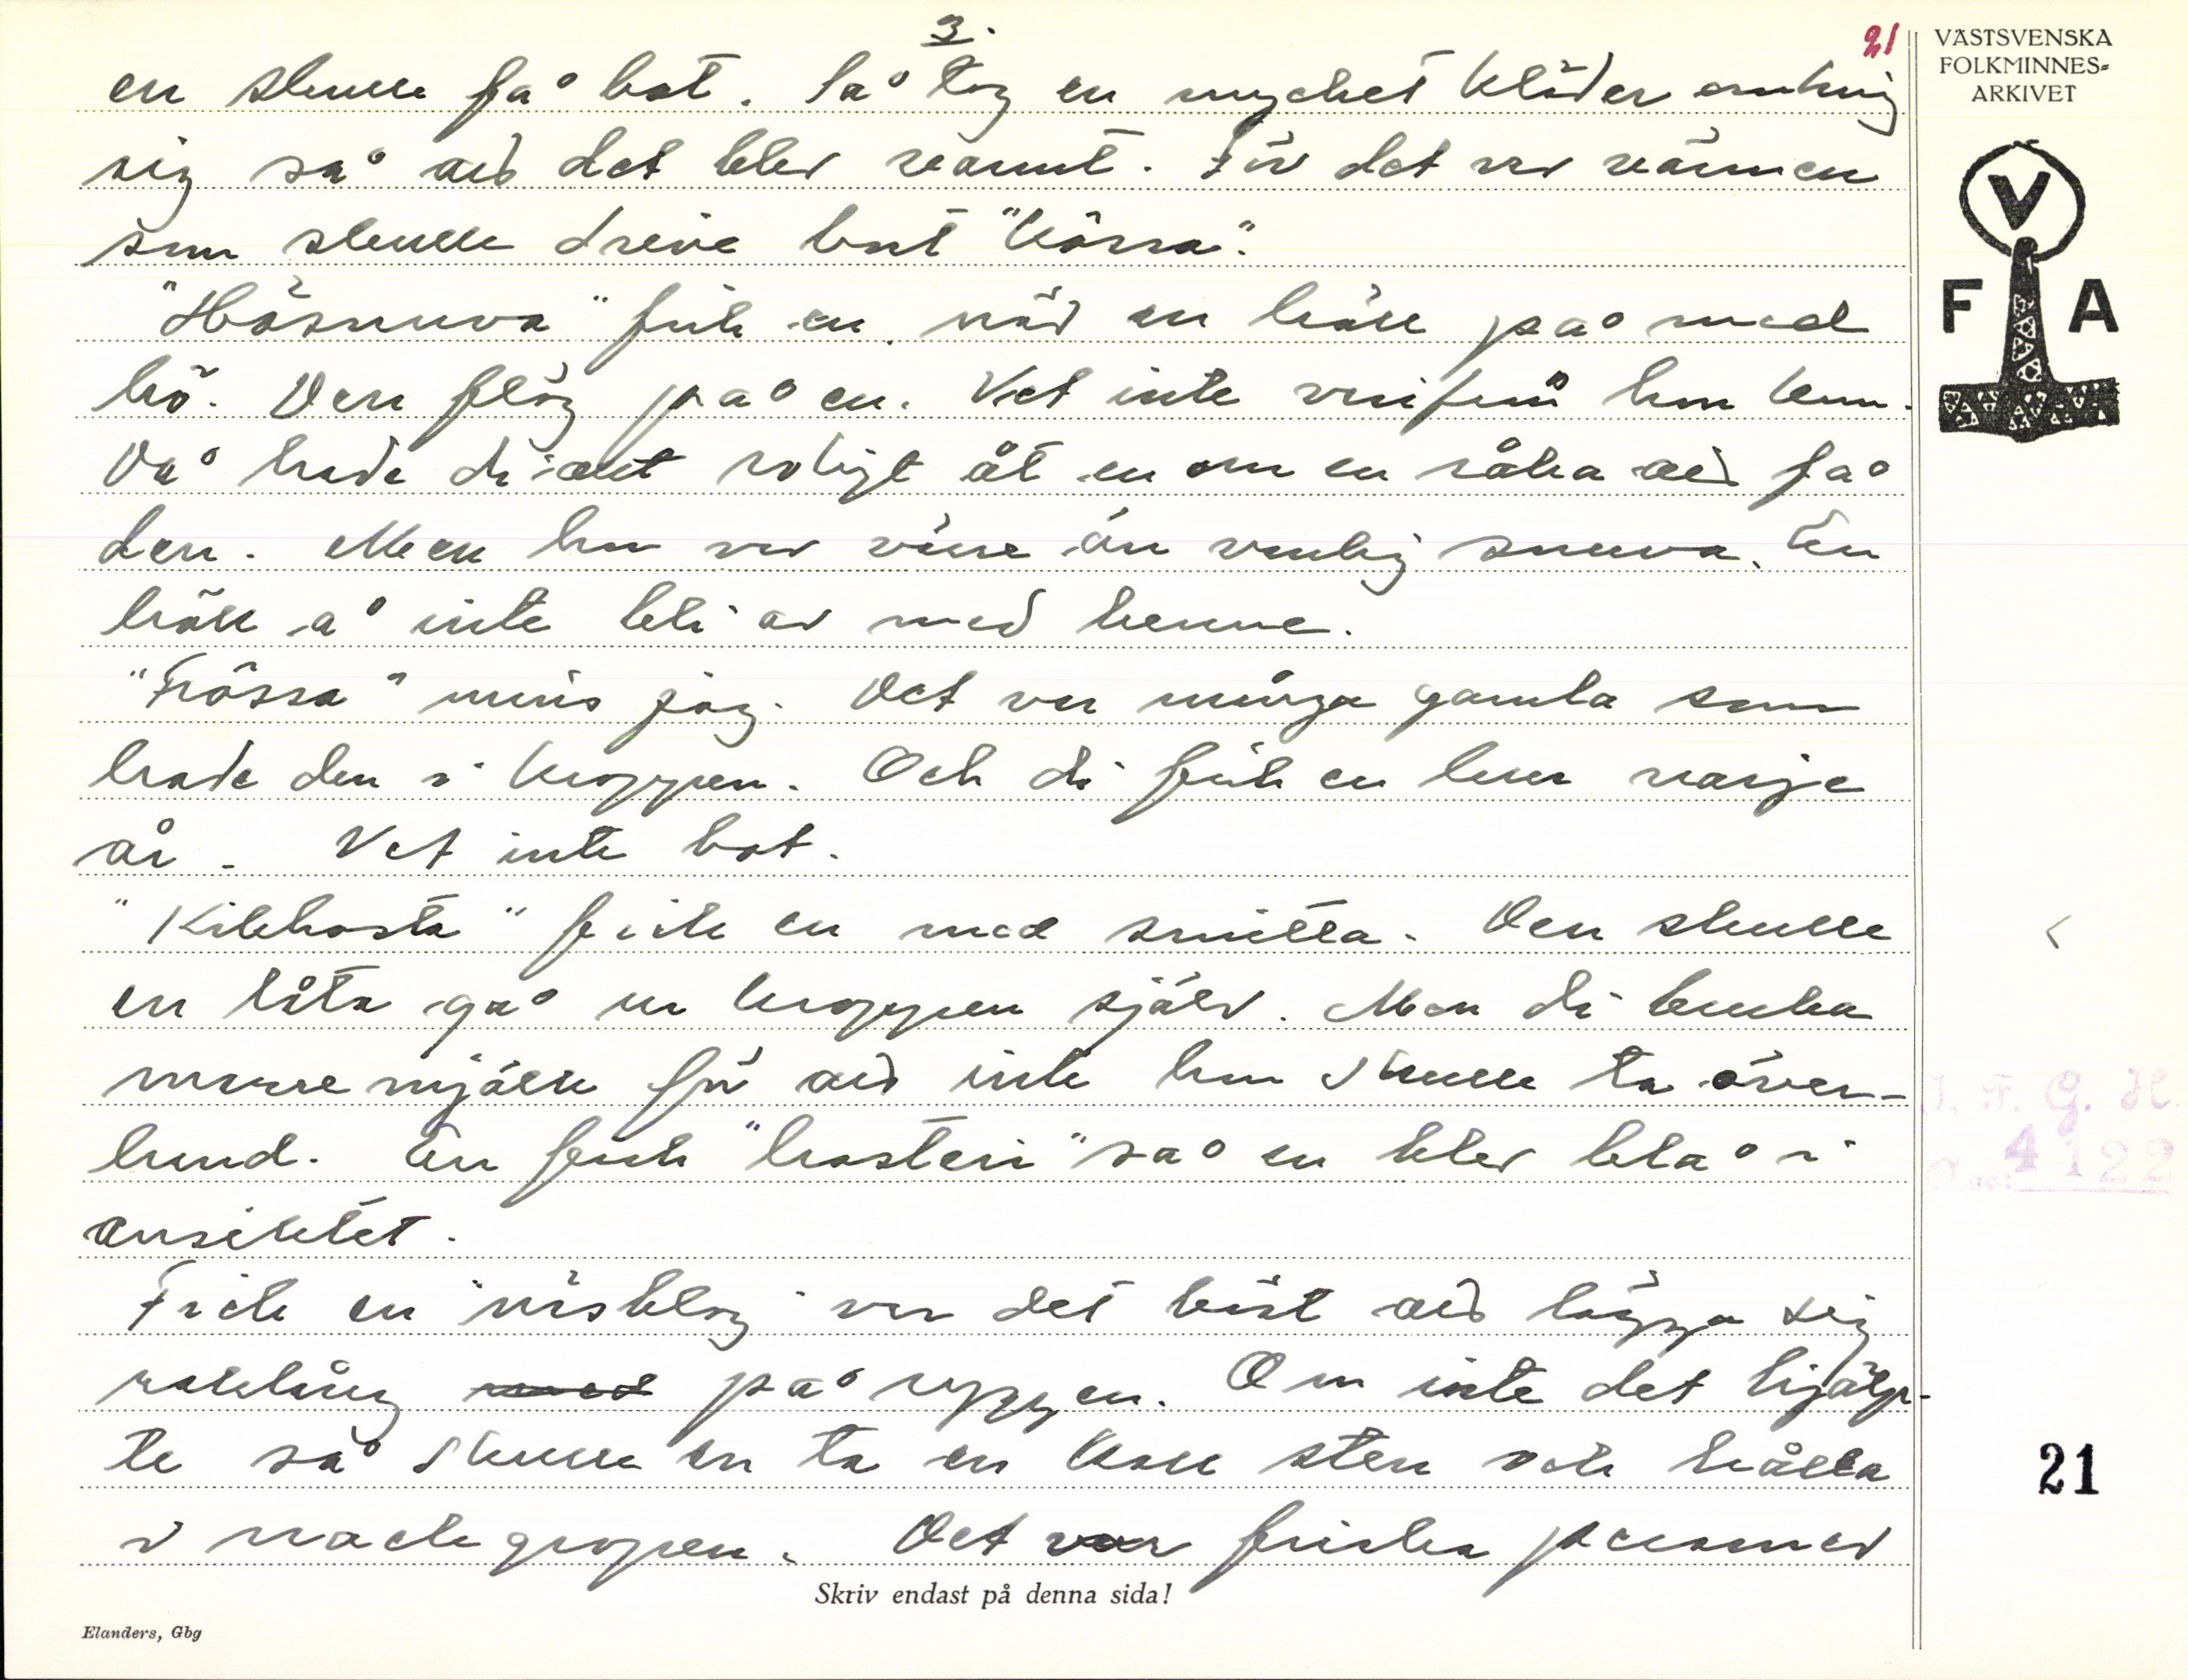 3.
21
en skulle få bot. Så tog en mycket kläder omkring
sig så att det blev varmt. För det var värmen
som skulle dreive bort "kåssa".
"Hösnuva" fick en når en höll på med
hö. Den flög på en. Vet inte varifrån hon kom.
Då hade di ont roligt åt en om en råka att få
den. Men hon var värre än vanlig snuva. En
höll å inte bli av med henne.
"Frössa" minns jag. Det var många gamla som
hade den i kroppen. Och di fick en kur varje
år. Vet inte bot.
"Kikhosta" fick en med smitta. Den skulle
en låta gå ur kroppen själv. Men di bruka
mjölk för att inte hon skulle ta över-
hand. En fick "hosteri" så en blev blå i
ansiktet.
Fick en näsblog var det bäst att lägga sig
raklång på ryggen. Om inte det hjälp-
te så skulle en ta en kall sten och hålla
i nackgropen. Det var friska personer
VÄSTSVENSKA
FOLKMINNES-
ARKIVET
V
F A
I. F. G. H.
Acc: 4122
21
Skriv endast på denna sida!
Elanders, Gbg